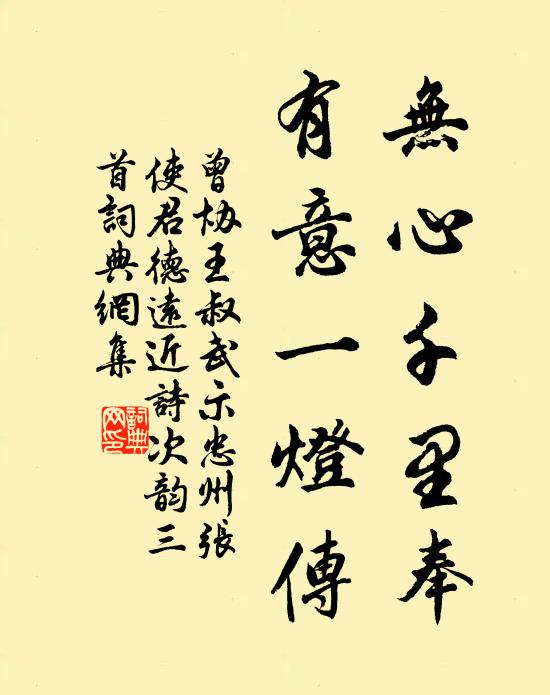 無心千里奉
有意一燈傳
曾協王叔武示忠州張
使君德遠近詩次韵三
首詞典網集
詞典
網印